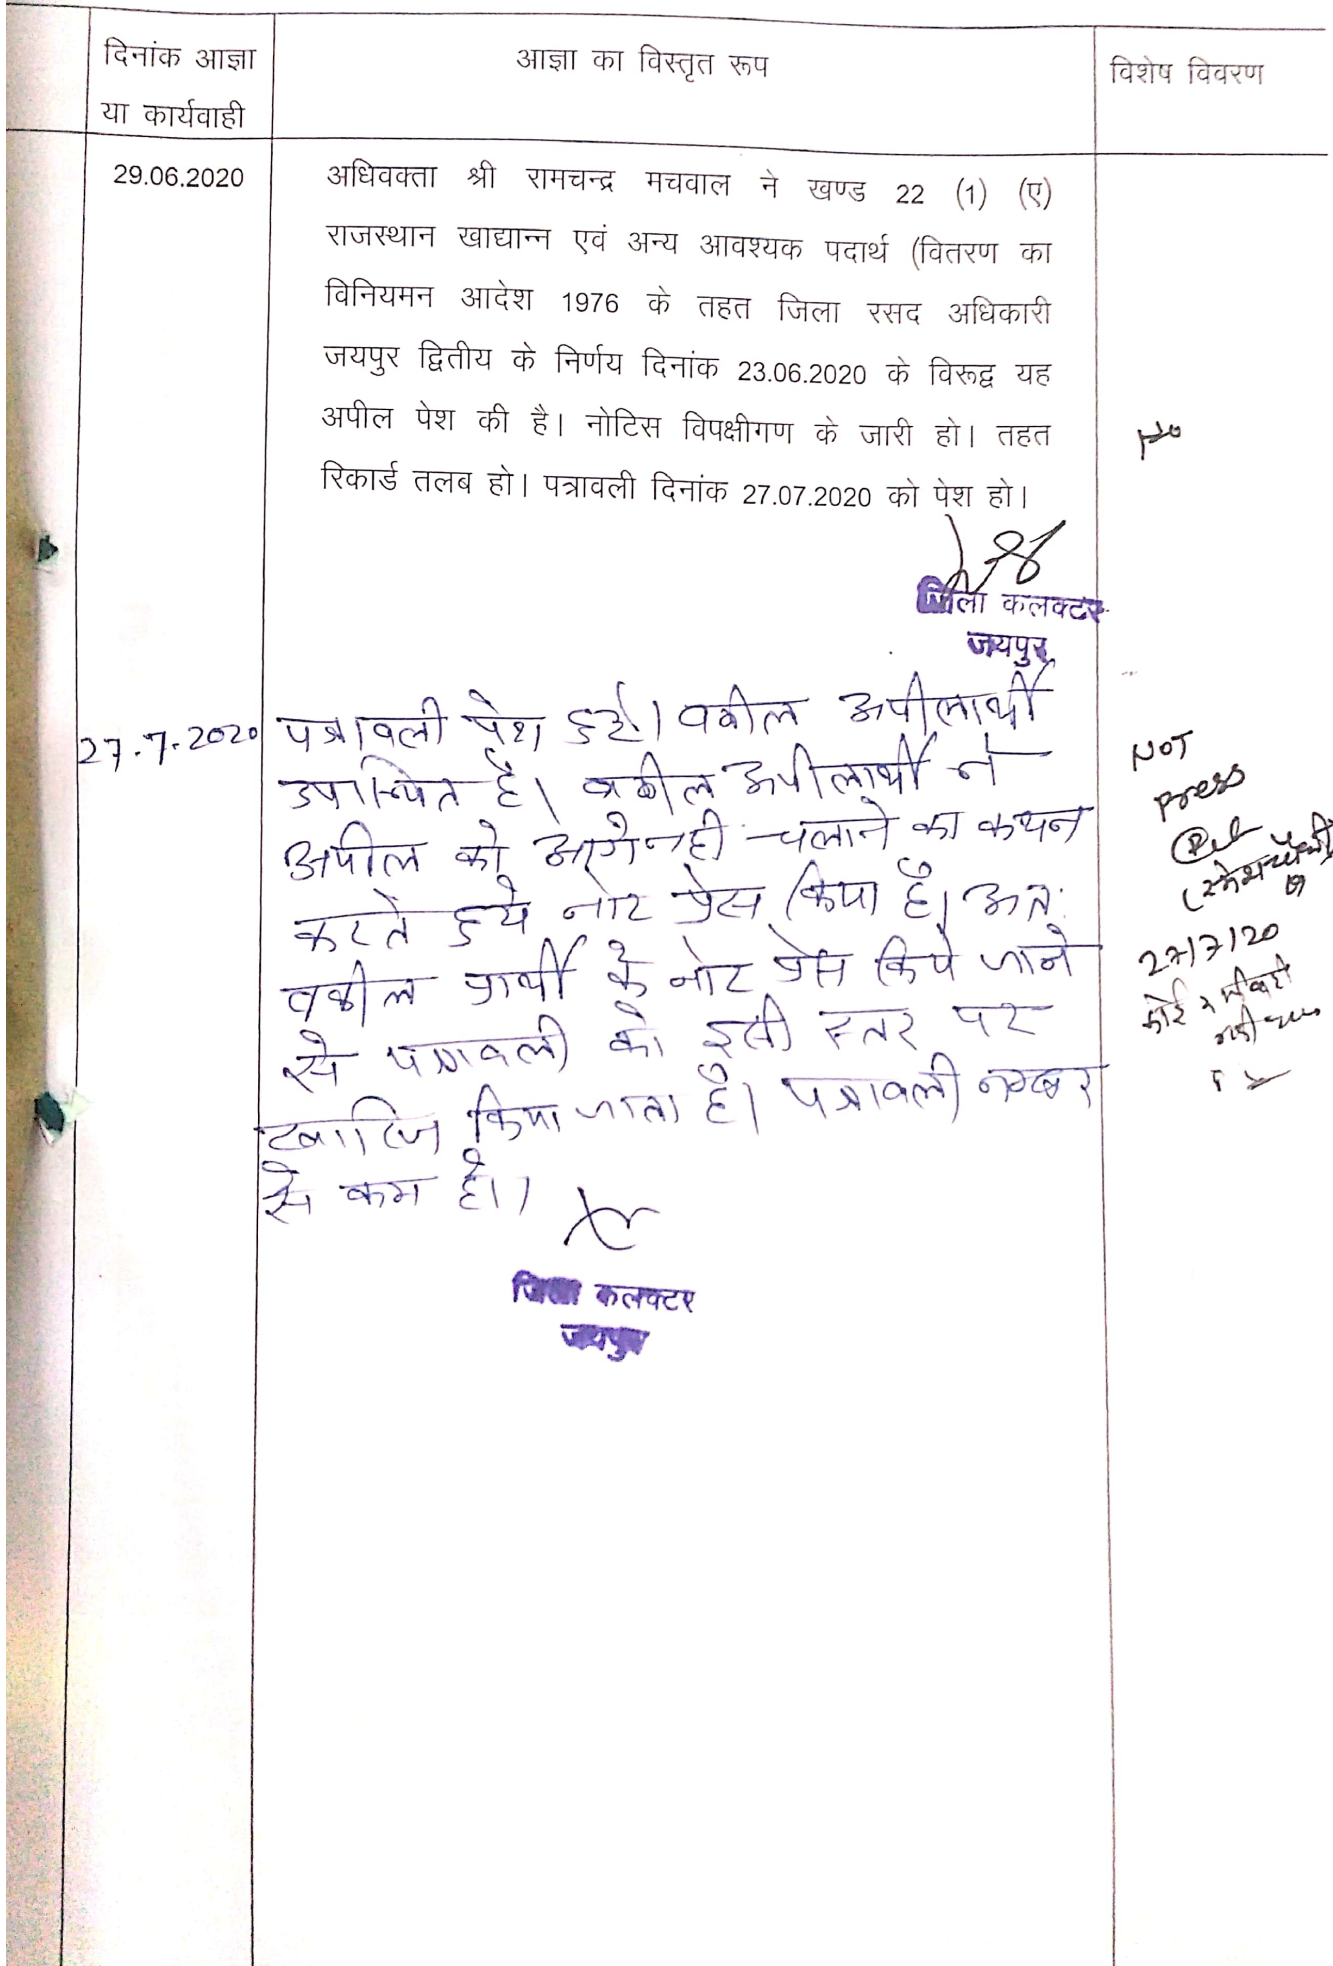 दिनांक आज्ञा
या कार्यवाही
आज्ञा का विस्तृत रूप
विशेष विवरण
29.06.2020
अधिवक्ता श्री रामचन्द्र मचवाल ने खण्ड 22 (1) (ए)
राजस्थान खाद्यान्न एवं अन्य आवश्यक पदार्थ (वितरण का
विनियमन आदेश 1976 के तहत जिला रसद अधिकारी
जयपुर द्वितीय के निर्णय दिनांक 23.06.2020 के विरूद्व यह
अपील पेश की है। नोटिस विपक्षीगण के जारी हो। तहत
रिकार्ड तलब हो। पत्रावली दिनांक 27.07.2020 को पेश हो।
जिला कलक्टर
जयपुर
27.7.2020
पत्रावली पेश हुई। वकील अपीलार्थी
उपस्थित है। वकील अपीलार्थी ने
अपील को आगे नही चलाने का कथन
करते हुये नोट प्रेस किया है। अतः
वकील प्रार्थी के नोट प्रेस किये जाने
से पत्रावली को इसी स्तर पर
खारिज किया जाता है। पत्रावली नम्बर
से कम हो।
जिला कलक्टर
जयपुर
NOT
press
27/7/20